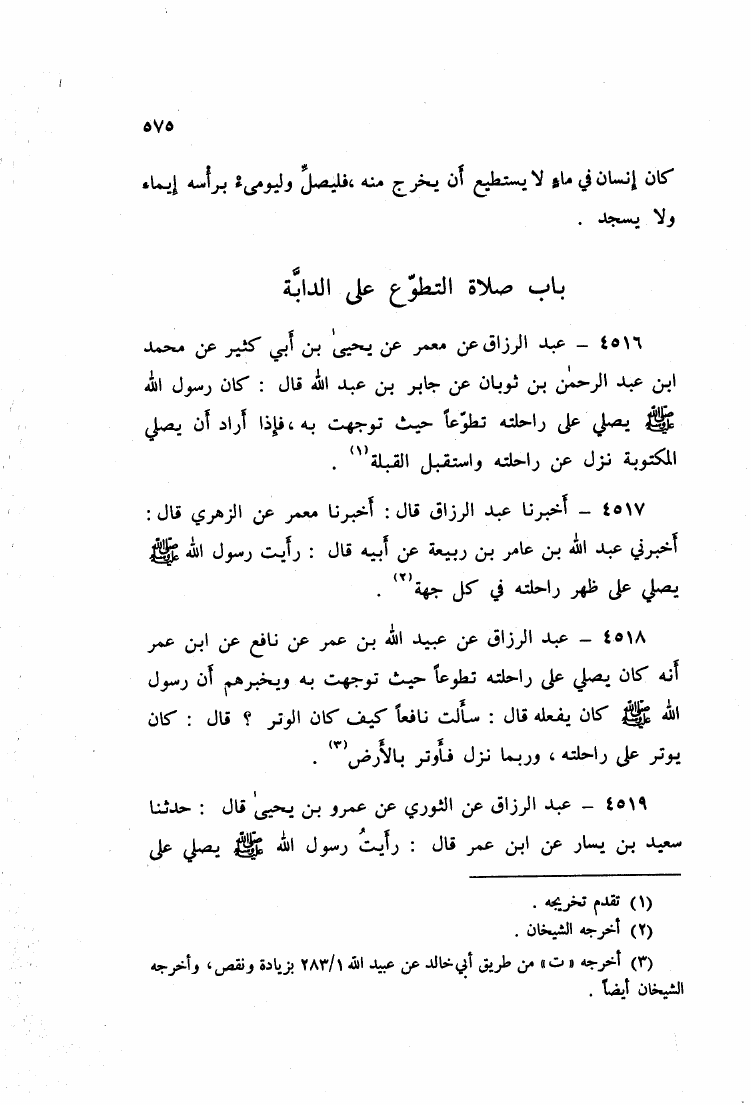 ٥٧٥
كان إنسان في ماءٍ لا يستطيع أن يخرج منه ،فليصلِّ وليومىءْ برأسه إيماء
ولا يسجد .
باب صلاة التطوّع على الدابَّة
٤٥١٦ – عبد الرزاق عن معمر عن يحيىٰ بن أبي كثير عن محمد
ابن عبد الرحمٰن بن ثوبان عن جابر بن عبد الله قال : كان رسول الله
ﷺ يصلي على راحلته تطوّعاً حيث توجهت به ،فإذا أراد أن يصلي
المكتوبة نزل عن راحلته واستقبل القبلة(١) .
٤٥١٧ – أخبرنا عبد الرزاق قال : أخبرنا معمر عن الزهري قال :
أخبرني عبد الله بن عامر بن ربيعة عن أبيه قال : رأيت رسول الله ﷺ
يصلي على ظهر راحلته في كل جهة(٢) .
٤٥١٨ – عبد الرزاق عن عبيد الله بن عمر عن نافع عن ابن عمر
أنه كان يصلي على راحلته تطوعاً حيث توجهت به ويخبرهم أن رسول
الله ﷺ كان يفعله قال : سألت نافعاً كيف كان الوتر ؟ قال : كان
يوتر على راحلته ، وربما نزل فأوتر بالأرض(٣) .
٤٥١٩ – عبد الرزاق عن الثوري عن عمرو بن يحيىٰ قال : حدثنا
سعيد بن يسار عن ابن عمر قال : رأيتُ رسول الله ﷺ يصلي على
(١) تقدم تخريجه .
(٢) أخرجه الشيخان .
(٣) أخرجه « ت » من طريق أبي خالد عن عبيد الله ٢٨٣/١ بزيادة ونقص ، وأخرجه
الشيخان أيضاً .